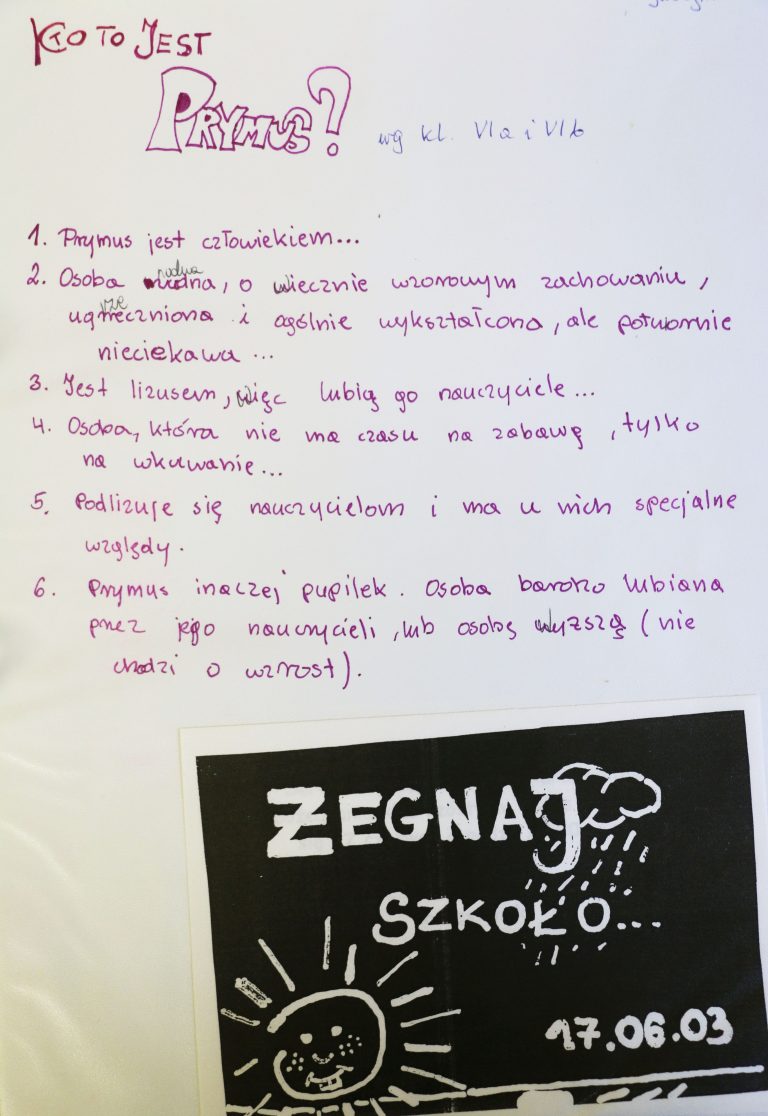 KTO TO JEST
PRYMUS?
wg kl. VI a i VI b
1. Prymus jest człowiekiem...
2. Osoba nudna, o wiecznie wzorowym zachowaniu,
ugrzeczniona i ogólnie wykształcona, ale potwornie
nieciekawa...
3. Jest lizusem, więc lubią go nauczyciele...
4. Osoba, która nie ma czasu na zabawę, tylko
na wkuwanie...
5. Podlizuje się nauczycielom i ma u nich specjalne
względy.
6. Prymus inaczej pupilek. Osoba bardzo lubiana
przez jego nauczycieli, lub osobę wyższą (nie
chodzi o wzrost).
ŻEGNAJ
SZKOŁO...
17.06.03